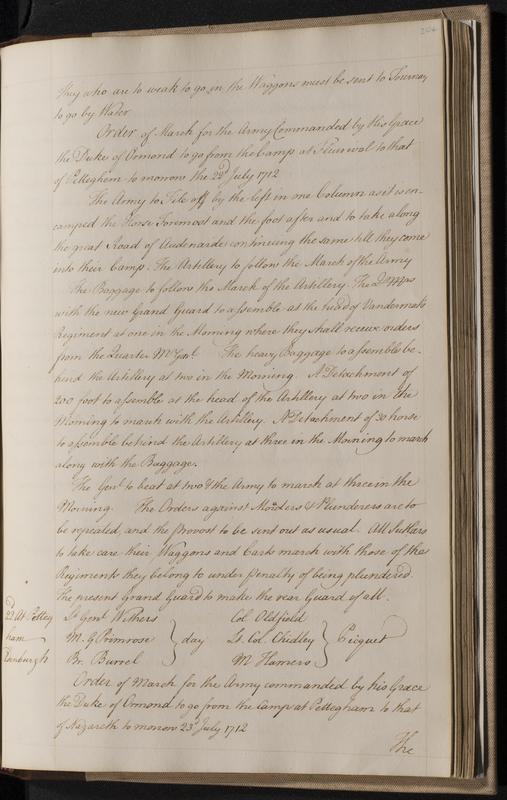 204
they who are to weak to go in the Waggons must be sent to Tournay
to go by Water
Order of March for the Army Commanded by His Grace
the Duke of Ormond to go from the Camp at to that
of Petteghem to morrow the 22d July 1712
The Army to File off by the left in one Column as it is en-
camped the Horse Foremost and the foot after and to take along
the great Road of Audenarde continuing the same till they come
into their Camp. The Artillery to follow the March of the Army
The Baggage to follow the March of the Artillery. The Qr Mrs
with the new Grand Guard to assemble at the head of
Regiment at one in the Morning where they shall receive orders
from the Quarter Mr Genl. The heavy Baggage to assemble be-
hind the Artillery at two in the Morning. A Detachment of
200 foot to assemble at the head of the Artillery at two in the
Morning to march with the Artillery. A Detachment of 30 horse
to assemble behind the Artillery at three in the Morning to march
along with the Baggage.
The Genl to beat at two & the Army to march at three in the
Morning. The Orders against & Plunderers are to
be repeated, and the Provost to be sent out as usual. All Sutlars
to take care their Waggons and Carts march with those of the
Regiments they belong to under penalty of being plundered.
The present Grand Guard to make the rear Guard of all.
22d At Petteg
ham
Lt Genl Withers
M. G. Primrose
Br. Burrel
day
Col. Oldfield
Lt. Col. Chidley
M Hamers
Picquet
Order of March for the Army commanded by his Grace
the Duke of Ormond to go from the Camp at Pettegham to that
of Nazareth to morrow 23d July 1712
The